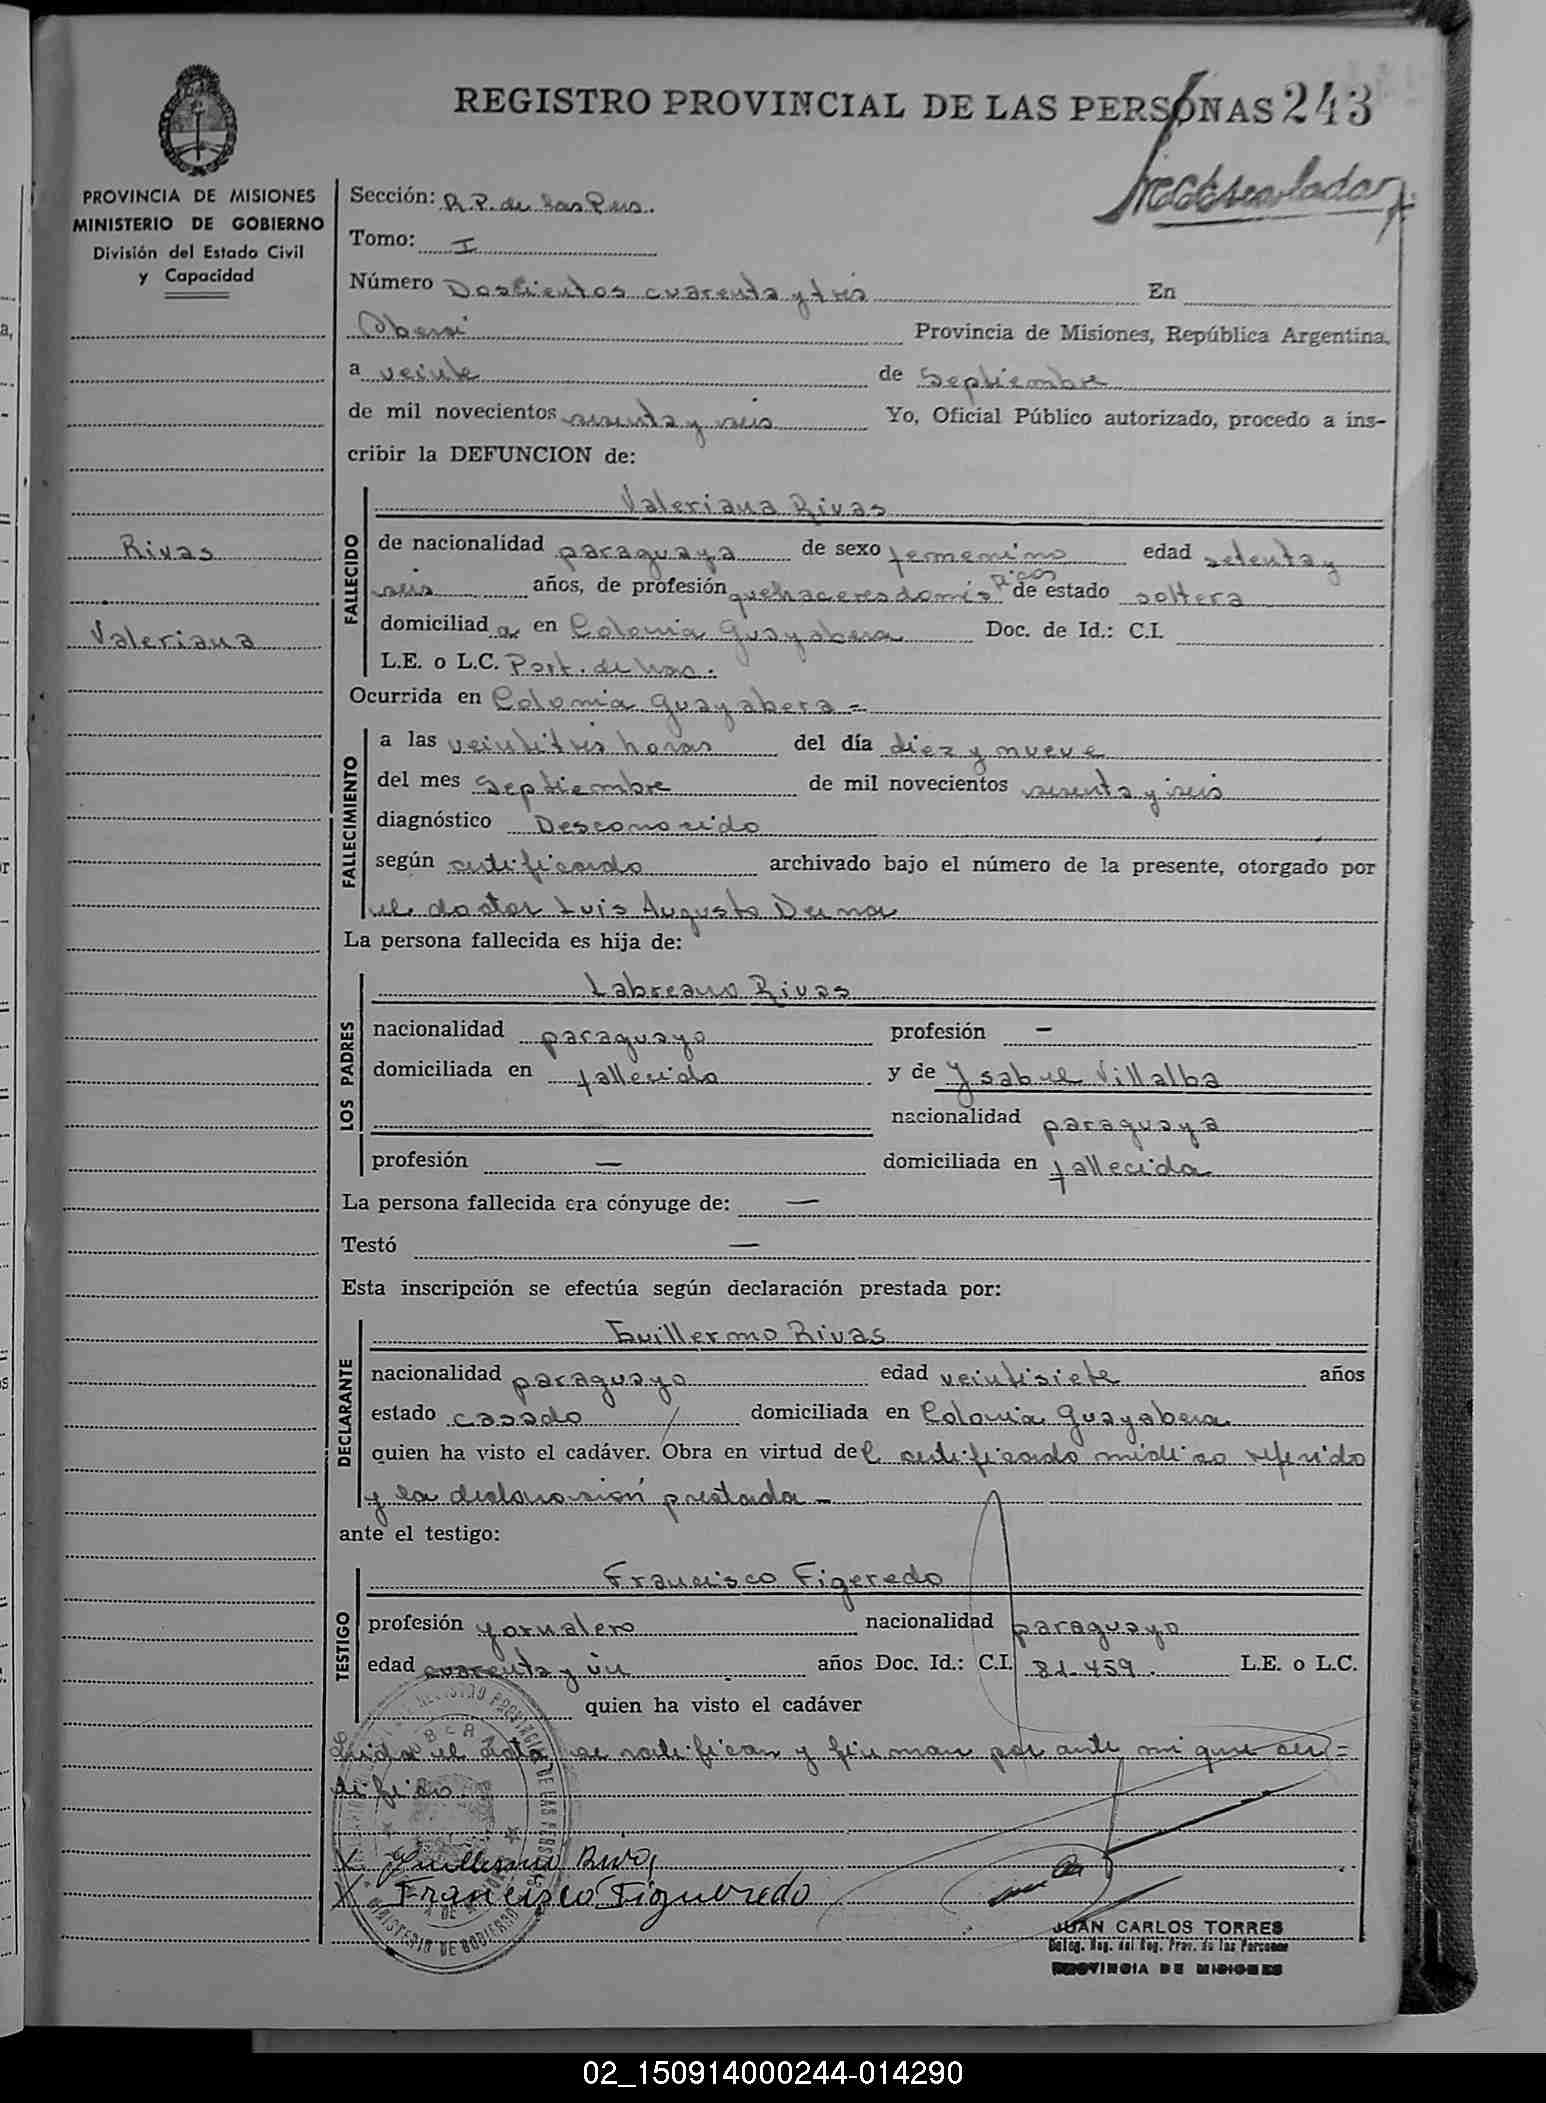 REGISTRO PROVINCIAL DE LAS PERSONAS 243
PROVINCIA DE MISIONES
MINISTERIO DE GOBIERNO
División del Estado Civil
y Capacidad
Rivas
Valeriana
Sección: R.P. de las Pers.
Tomo: I
Número Doscientos cuarenta y tres En
Oberá Provincia de Misiones, República Argentina,
a veinte de Septiembre
de mil novecientos sesenta y seis Yo, Oficial Público autorizado, procedo a ins-
cribir la DEFUNCION de:
FALLECIDO
Valeriana Rivas
de nacionalidad paraguaya de sexo femenino edad setenta y
seis años, de profesión quehaceres domésticos de estado soltera
domiciliad a en Colonia Guayabera Doc. de Id.: C.I.
L.E. o L.C.
Ocurrida en Colonia Guayabera =
FALLECIMIENTO
a las veintitrés horas del día diez y nueve
del mes Septiembre de mil novecientos sesenta y seis
diagnóstico Desconocido
según certificado archivado bajo el número de la presente, otorgado por
el doctor Luis Augusto
La persona fallecida es hija de:
LOS PADRES
Labreano Rivas
nacionalidad paraguayo profesión —
domiciliada en fallecido y de Ysabel Villalba
nacionalidad paraguaya
profesión — domiciliada en fallecida
La persona fallecida era cónyuge de: —
Testó —
Esta inscripción se efectúa según declaración prestada por:
DECLARANTE
Guillermo Rivas
nacionalidad paraguayo edad veintisiete años
estado casado domiciliada en Colonia Guayabera
quien ha visto el cadáver. Obra en virtud del certificado médico referido
y la declaración prestada —
ante el testigo:
TESTIGO
Francisco Figeredo
profesión Jornalero nacionalidad paraguayo
edad cuarenta y un años Doc. Id.: C.I. 81.459. L.E. o L.C.
quien ha visto el cadáver
Leida el Acta, se ratifican y firman por ante mi que cer=
tifico.
X Guillermo Rivas
X Francisco Figueredo
JUAN CARLOS TORRES
Deleg. Reg. del Reg. Prov. de las Personas
PROVINCIA DE MISIONES
02_150914000244-014290